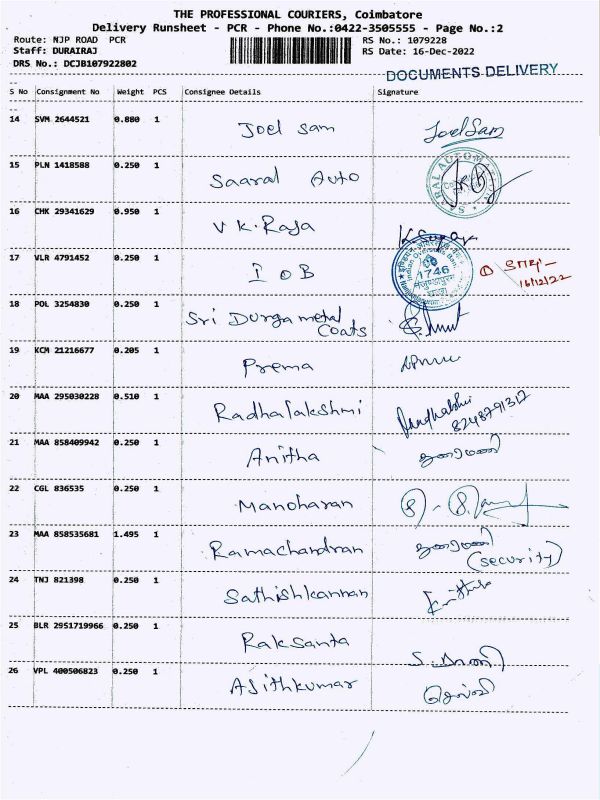 THE PROFESSIONAL COURIERS, Coimbatore
Delivery Runsheet - PCR - Phone No.:0422-3505555 - Page No.:2
Route: NJP ROAD PCR RS No.: 1079228
Staff: DURAIRAJ RS Date: 16-Dec-2022
DRS No.: DCJB107922802
DOCUMENTS DELIVERY
S No Consignment No Weight PCS Consignee Details Signature
14 SVM 2644521 0.880 1 Joel Sam JoelSam
15 PLN 1418588 0.250 1 Saaral Auto
16 CHK 29341629 0.950 1 V K. Raja
17 VLR 4791452 0.250 1 I O B 1746
16/12/22
18 POL 3254830 0.250 1 Sri Durga metal
Coats
19 KCM 21216677 0.205 1 Prema
20 MAA 295030228 0.510 1 Radhalakshmi
8248791317
21 MAA 858409942 0.250 1 Anitha
22 CGL 836535 0.250 1 Manoharan
23 MAA 858535681 1.495 1 Ramachandran
(security)
24 TNJ 821398 0.250 1 Sathishkannan
25 BLR 2951719966 0.250 1 Raksanta
26 VPL 400506823 0.250 1 Ajithkumar செல்வி